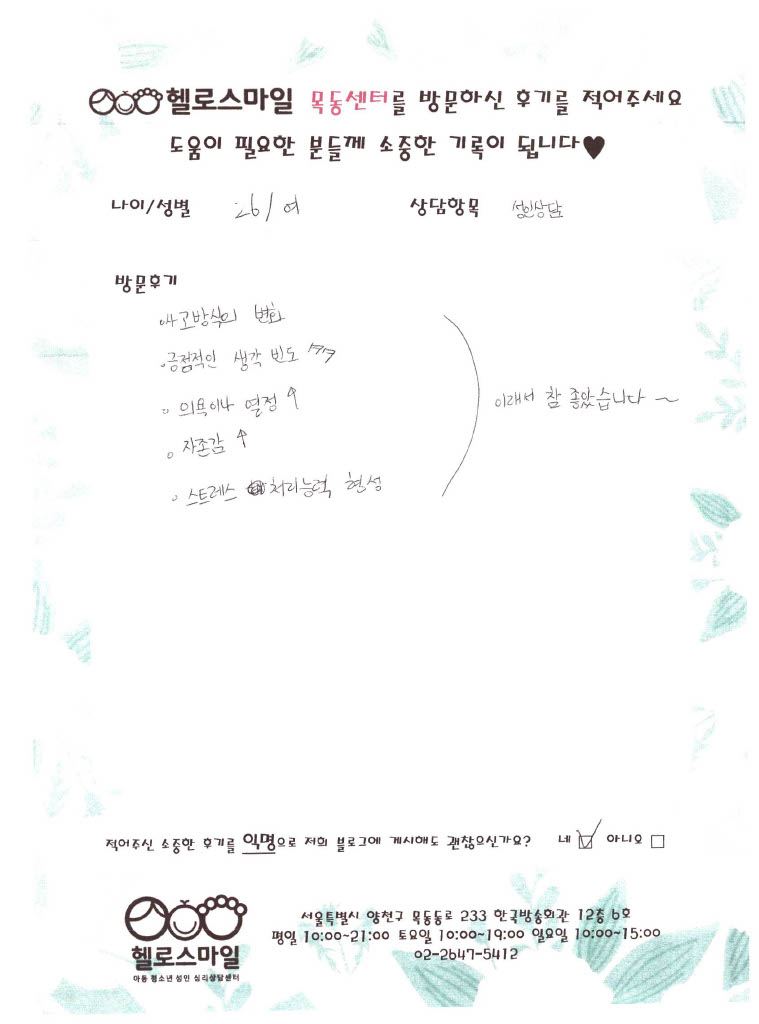 헬로스마일 목동센터를 방문하신 후기를 적어주세요
도움이 필요한 분들께 소중한 기록이 됩니다♥
나이/성별 26/여 상담항목 성인상담
방문후기
사고방식의 변화
긍정적인 생각 빈도 ↗↗
의욕이나 열정 ↑
자존감 ↑
스트레스 처리능력 형성
이래서 참 좋았습니다 ~
적어주신 소중한 후기를 익명으로 저희 블로그에 게시해도 괜찮으신가요? 네 ☑ 아니오 □
헬로스마일
아동 청소년 성인 심리상담센터
서울특별시 양천구 목동동로 233 한국방송회관 12층 6호
평일 10:00~21:00 토요일 10:00~19:00 일요일 10:00~15:00
02-2647-5412